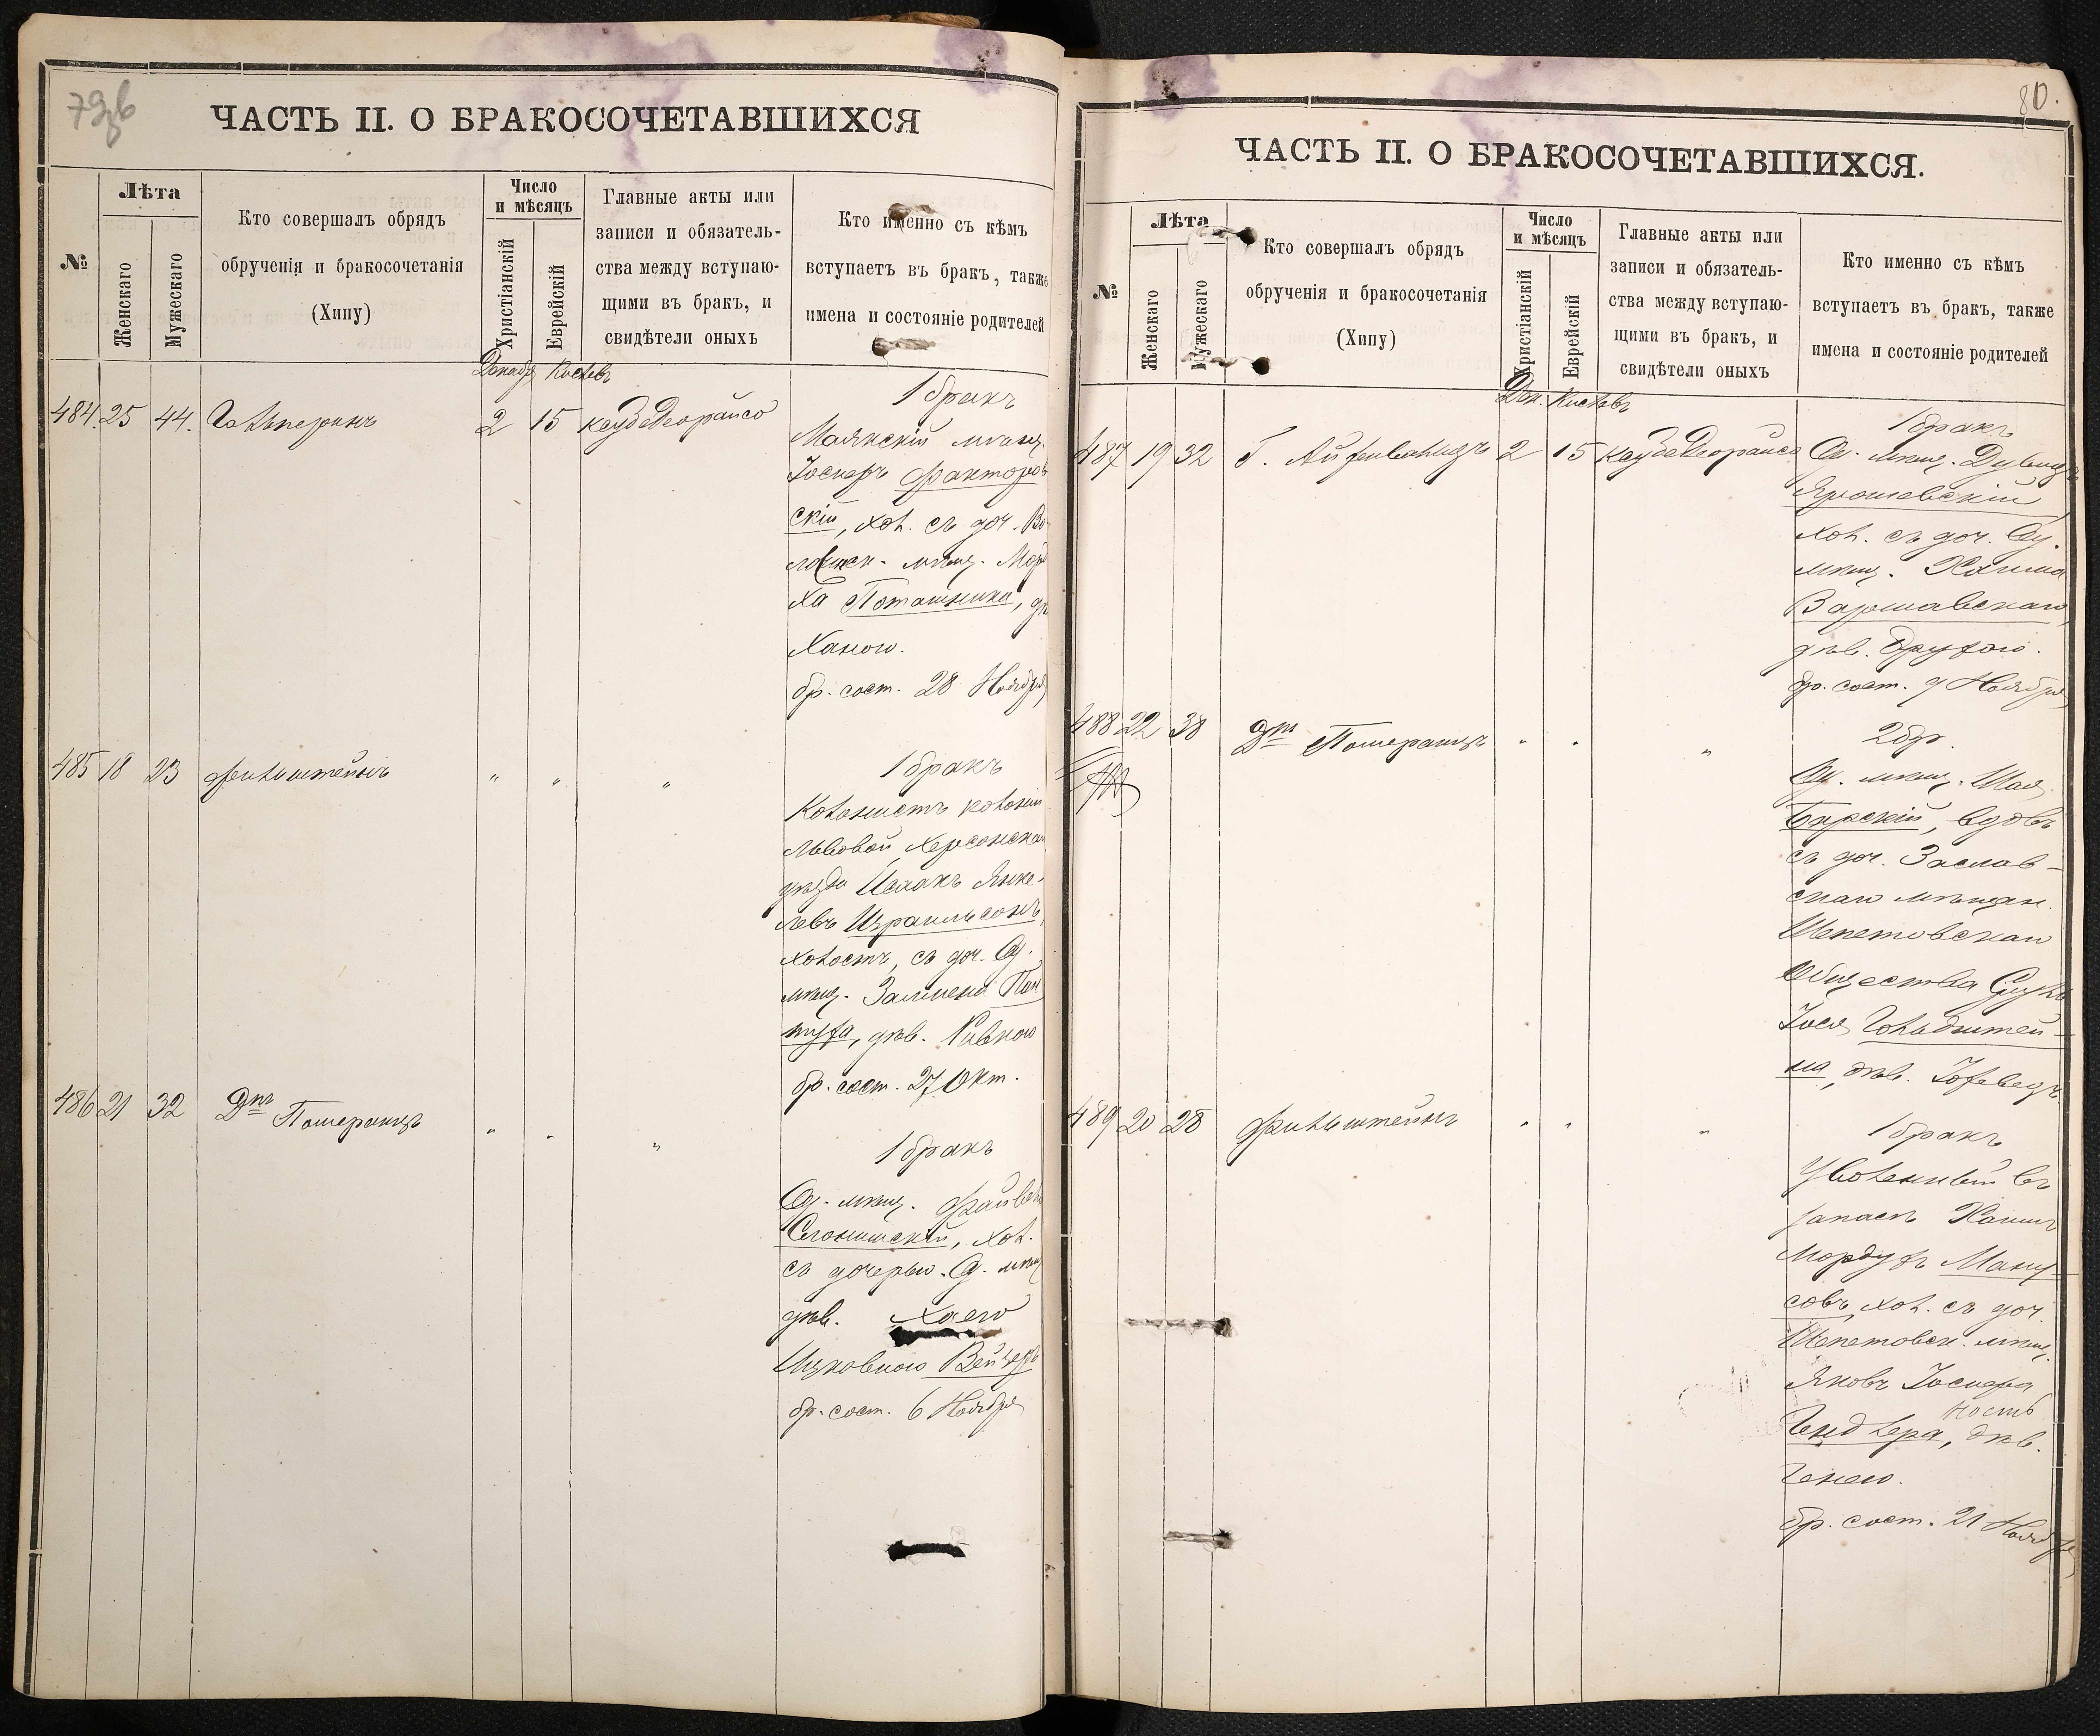 79об
ЧАСТЬ II. О БРАКОСОЧЕТАВШИХСЯ
№
Лѣта
Женскаго
Мужескаго
Кто совершалъ обрядъ
обрученія и бракосочетанія
(Хипу)
Число
и мѣсяцъ
Христіанскій
Еврейскій
Главные акты или
записи и обязатель-
ства между вступаю-
щими въ бракъ, и
свидѣтели оныхъ
Кто именно съ кѣмъ
вступаетъ въ бракъ, также
имена и состояніе родителей
Декабр Кислевъ
484. 25 44. Гальперинъ 2 15
1 бракъ
Маякскій мѣщ.
Іосифъ Факторов
скій, хол. съ доч. Во-
мѣщ.
ха Поташника,
Ханою.
бр. сост. 28 Ноября
485 18 23 Финкштейнъ " " "
1 бракъ
Колонистъ колоніи
Львовой Херсонска
уѣзда Исаакъ Янке-
левъ Израильсонъ,
холостъ, съ доч. Од.
мѣщ. Залмена
дѣв. Ривкою
бр. сост. 27 Окт.
486 21 32 Дръ Померанцъ " " "
1 бракъ
Од. мѣщ. Файвел
Слонимскій, хол.
съ дочерью Од. мѣщ
дѣв. Хаею
Ицковною
бр. сост. 6 Ноября
80.
ЧАСТЬ II. О БРАКОСОЧЕТАВШИХСЯ.
№
Лѣта
Женскаго
Мужескаго
Кто совершалъ обрядъ
обрученія и бракосочетанія
(Хипу)
Число
и мѣсяцъ
Христіанскій
Еврейскій
Главные акты или
записи и обязатель-
ства между вступаю-
щими въ бракъ, и
свидѣтели оныхъ
Кто именно съ кѣмъ
вступаетъ въ бракъ, также
имена и состояніе родителей
Дек. Кислевъ
487 19 32 Г. Айзенванцъ 2 15
1 бракъ
Од. мѣщ. Дувидъ
Ярошевскій
хол. съ доч. Од.
мѣщ. Хаима
Варшавскаго,
дѣв. Фрузою.
бр. сост. 9 Ноября
488 22 38 Дръ Померанцъ " " "
2 бр.
Од. мѣщ. Шая
Бирскій, вдовъ
съ доч. Заслав-
скаго мѣщан.
Шепетовскаго
Общества
Іося Гольдштей-
на, дѣв. Іохеведъ
489 20 28 Финкштейнъ " " "
1 бракъ
Уволенный въ
запасъ Хаимъ
Мордухъ Ману-
совъ, хол. съ доч.
Шепетовск. мѣщ.
Яковъ Іосифа
Гендлера, дѣв.
Генею.
бр. сост. 21 Ноября